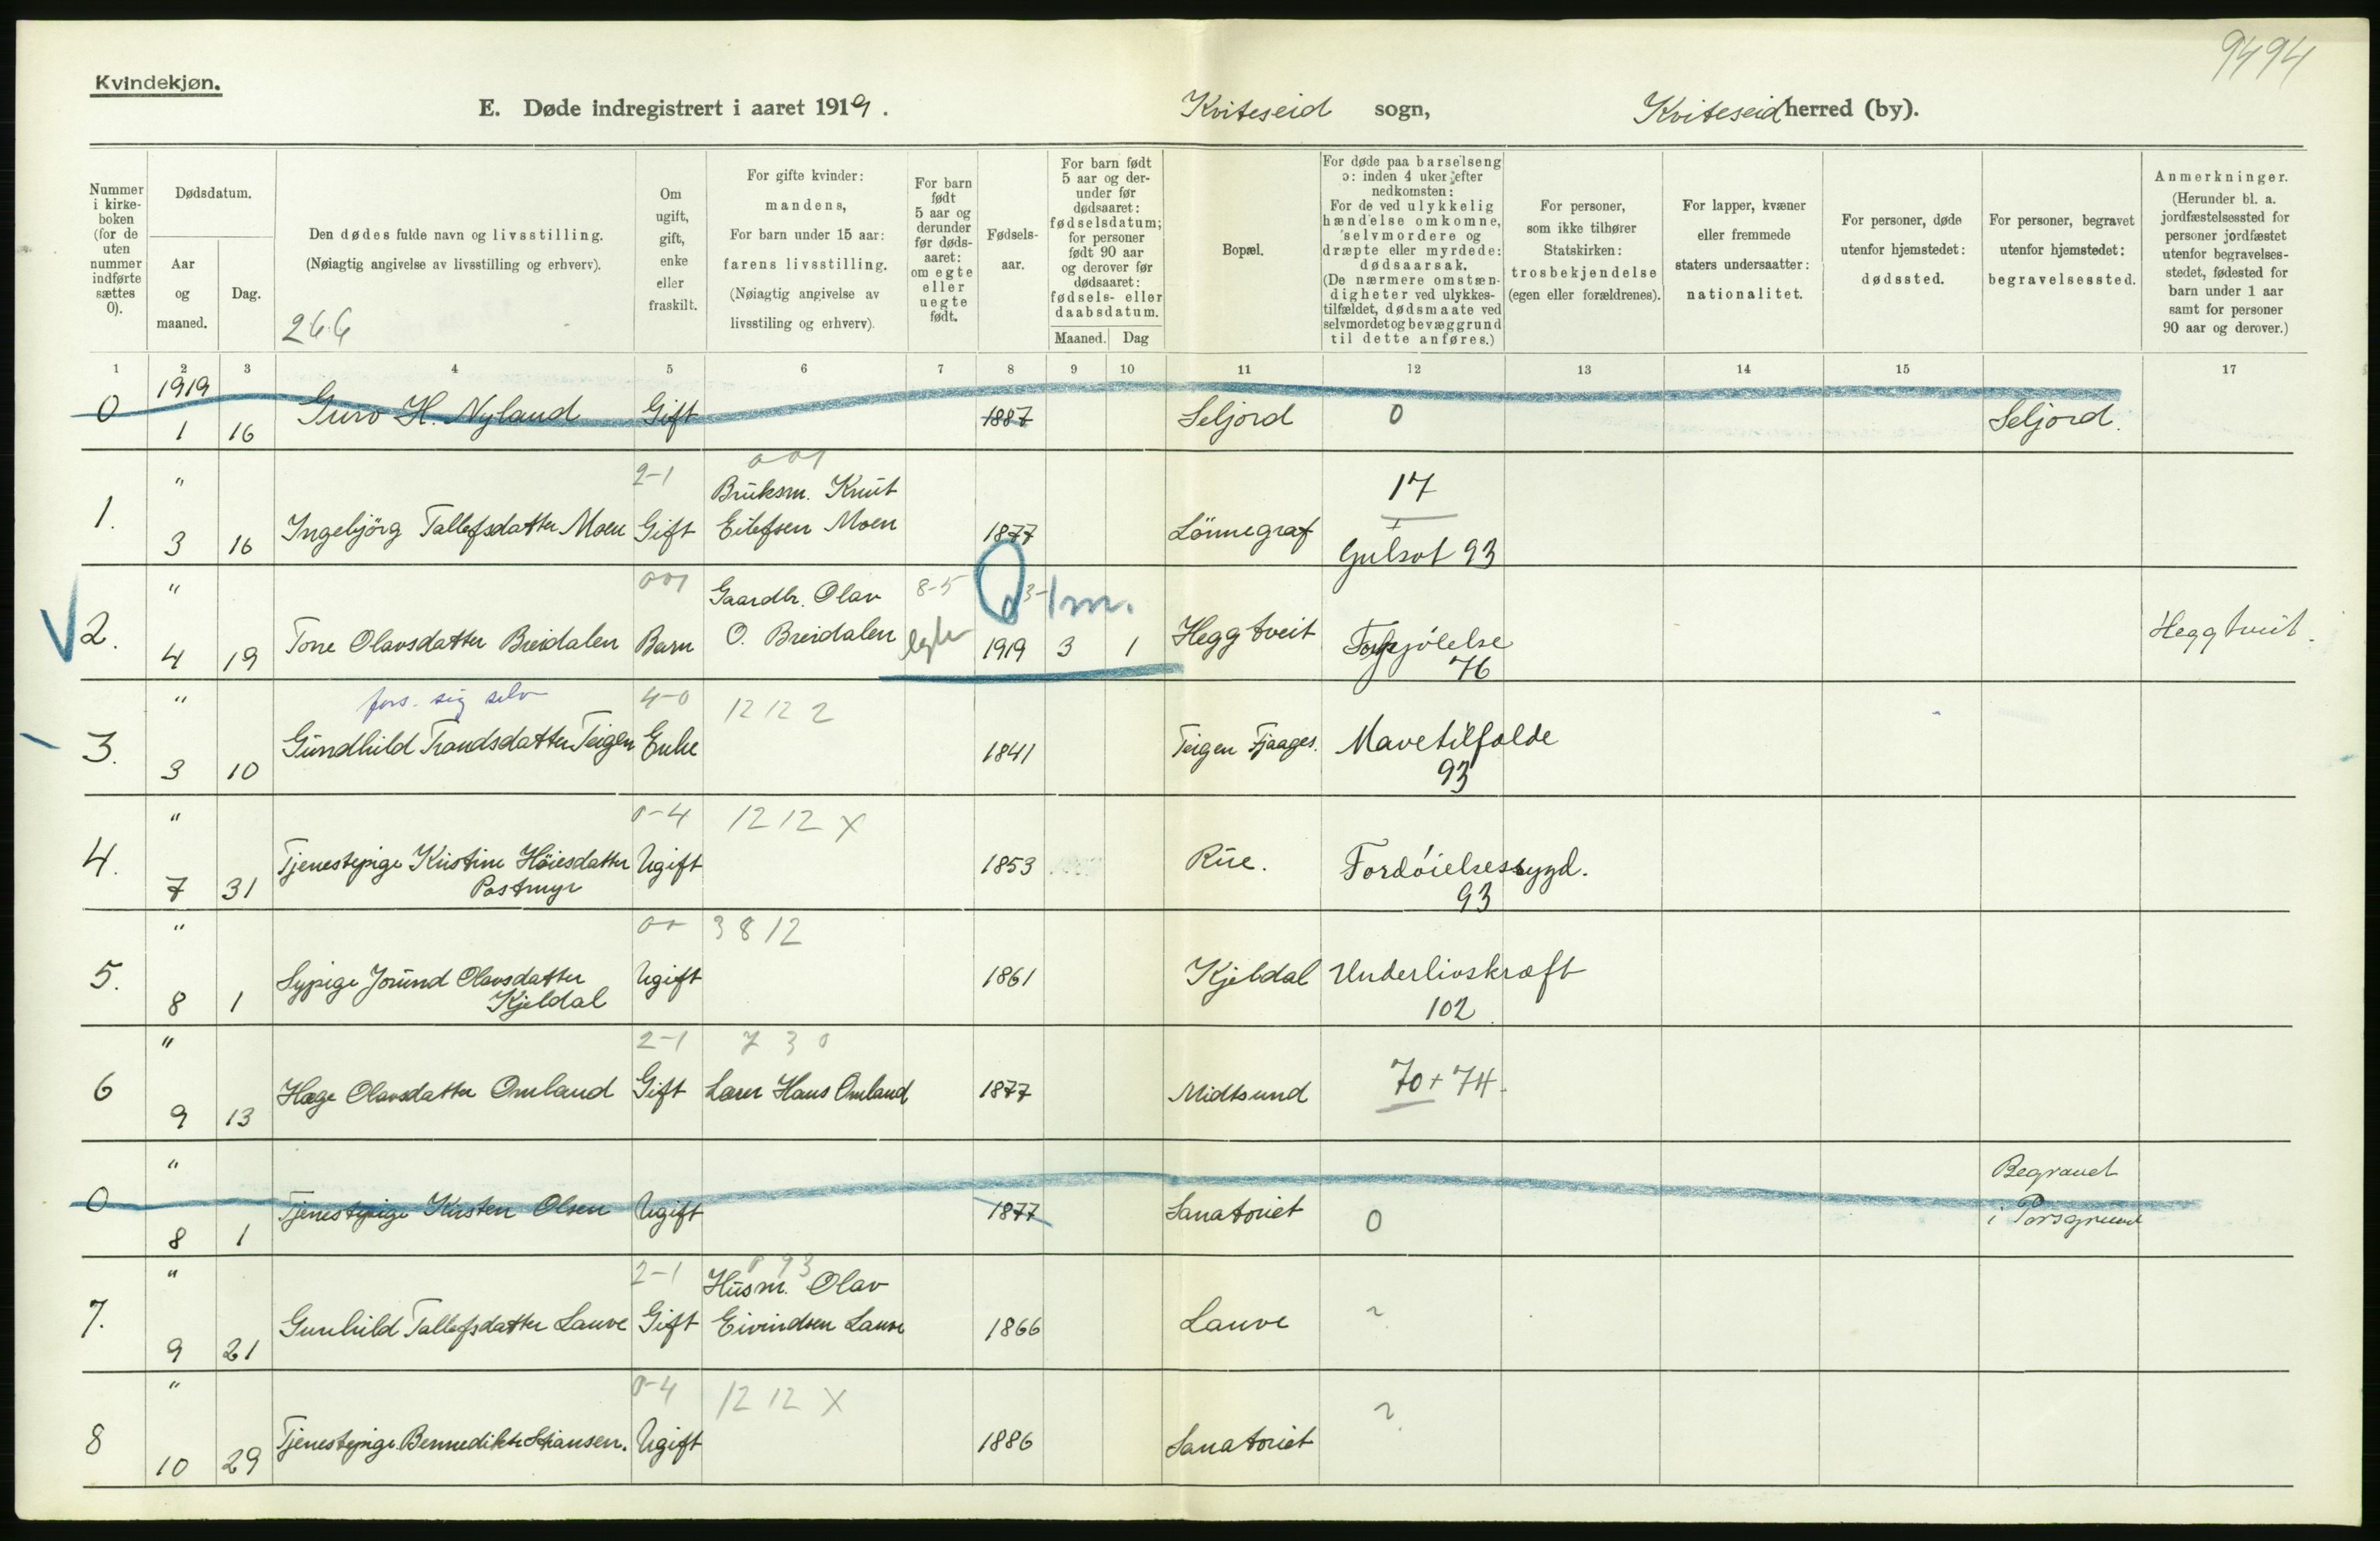 9494
Kvindekjøn.
E. Døde indregistrert i aaret 1919.
Kviteseid sogn,
Kviteseid herred (by).
Nummer
i kirke-
boken
(for de
uten
nummer
indførte
sættes
0).
Dødsdatum.
Aar
og
maaned.
Dag.
Den dødes fulde navn og livsstilling.
(Nøiagtig angivelse av livsstilling og erhverv).
266
Om
ugift,
gift,
enke
eller
fraskilt.
For gifte kvinder:
mandens,
For barn under 15 aar:
farens livsstilling.
(Nøiagtig angivelse av
livsstiling og erhverv).
For barn
født
5 aar og
derunder
før døds-
aaret:
om egte
eller
uegte
født.
Fødsels-
aar.
For barn født
5 aar og der-
under før
dødsaaret:
fødselsdatum;
for personer
født 90 aar
og derover før
dødsaaret:
fødsels- eller
daabsdatum.
Maaned. Dag
Bopæl.
For døde paa barselseng
ɔ: inden 4 uker efter
nedkomsten:
For de ved ulykkelig
hændelse omkomne,
selvmordere og
dræpte eller myrdede:
dødsaarsak.
(De nærmere omstæn-
digheter ved ulykkes-
tilfældet, dødsmaate ved
selvmordet og bevæggrund
til dette anføres.)
For personer,
som ikke tilhører
Statskirken:
trosbekjendelse
(egen eller forældrenes).
For lapper, kvæner
eller fremmede
staters undersaatter:
nationalitet.
For personer, døde
utenfor hjemstedet:
dødssted.
For personer, begravet
utenfor hjemstedet:
begravelsessted.
Anmerkninger.
(Herunder bl. a.
jordfæstelsessted for
personer jordfæstet
utenfor begravelses-
stedet, fødested for
barn under 1 aar
samt for personer
90 aar og derover.)
1 2 3 4 5 6 7 8 9 10 11 12 13 14 15 17
1919
0 1 16 Guro H. Nyland Gift 1887 Seljord 0 Seljord.
" 2-1 001 Bruksm. Knut 17
1. 3 16 Ingebjörg Tallefsdatter Moen Gift Eilefsen Moen 1877 Lönnegraf
Gulsot 93
" 001 Gaardbr. Olav 8-5 3- 1 m.
2. 4 19 Tone Olavsdatter Breidalen Barn O. Breidalen egte 1919 3 1 Heggtveit Forkjölelse Heggtveit.
76
" fors. sig selv 4-0 12 12 2
3. 3 10 Gundhild Trondsdatter Teigen Enke 1841 Teigen Fjaages. Mavetilfælde
93
" 0-4 12 12 X
4. 7 31 Tjenestepige Kristine Höiesdatter Ugift 1853 Rue. Fordöielsessygd.
Postmyr 93
" 00 3 8 12
5. 8 1 Sypige Jorund Olavsdatter Ugift 1861 Kjeldal Underlivskræft
Kjeldal 102
" 2-1 7 3 0
6 9 13 Hæge Olavsdatter Omland Gift Lærer Hans Omland 1877 Midtsund 70 + 74.
" Begravet
0 8 1 Tjenestepige Kirsten Olsen Ugift 1877 Sanatoriet 0 i Porsgrund
" 2-1 0 93 Husm. Olav
7. 9 21 Gunhild Tallefsdatter Lauve Gift Eivindsen Lauve 1866 Lauve ?
" 0-4 12 12 X
8 10 29 Tjenestepige Bennedikte Hansen. Ugift 1886 Sanatoriet ?